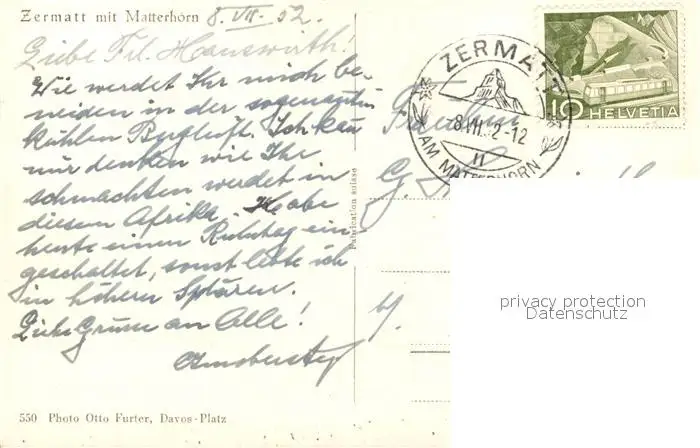 Zermatt mit Matterhorn
8. VII. 52.
Liebe Frl. Hauswirth!
Wie werdet Ihr mich be-
neiden in der
kühlen Bergluft. Ich kan
nur denken wie Ihr
schmachten werdet in
diesem Afrika. Habe
heute einen Ruhetag ein-
geschaltet, sonst lebte ich
in höhern Sphären.
Liebe Grüsse an Alle!
550 Photo Otto Furter, Davos-Platz
Fabrication suisse
ZERMATT
-8.VII.52-12
AM MATTERHORN
10 HELVETIA
Fräulein
G.
privacy protection
Datenschutz